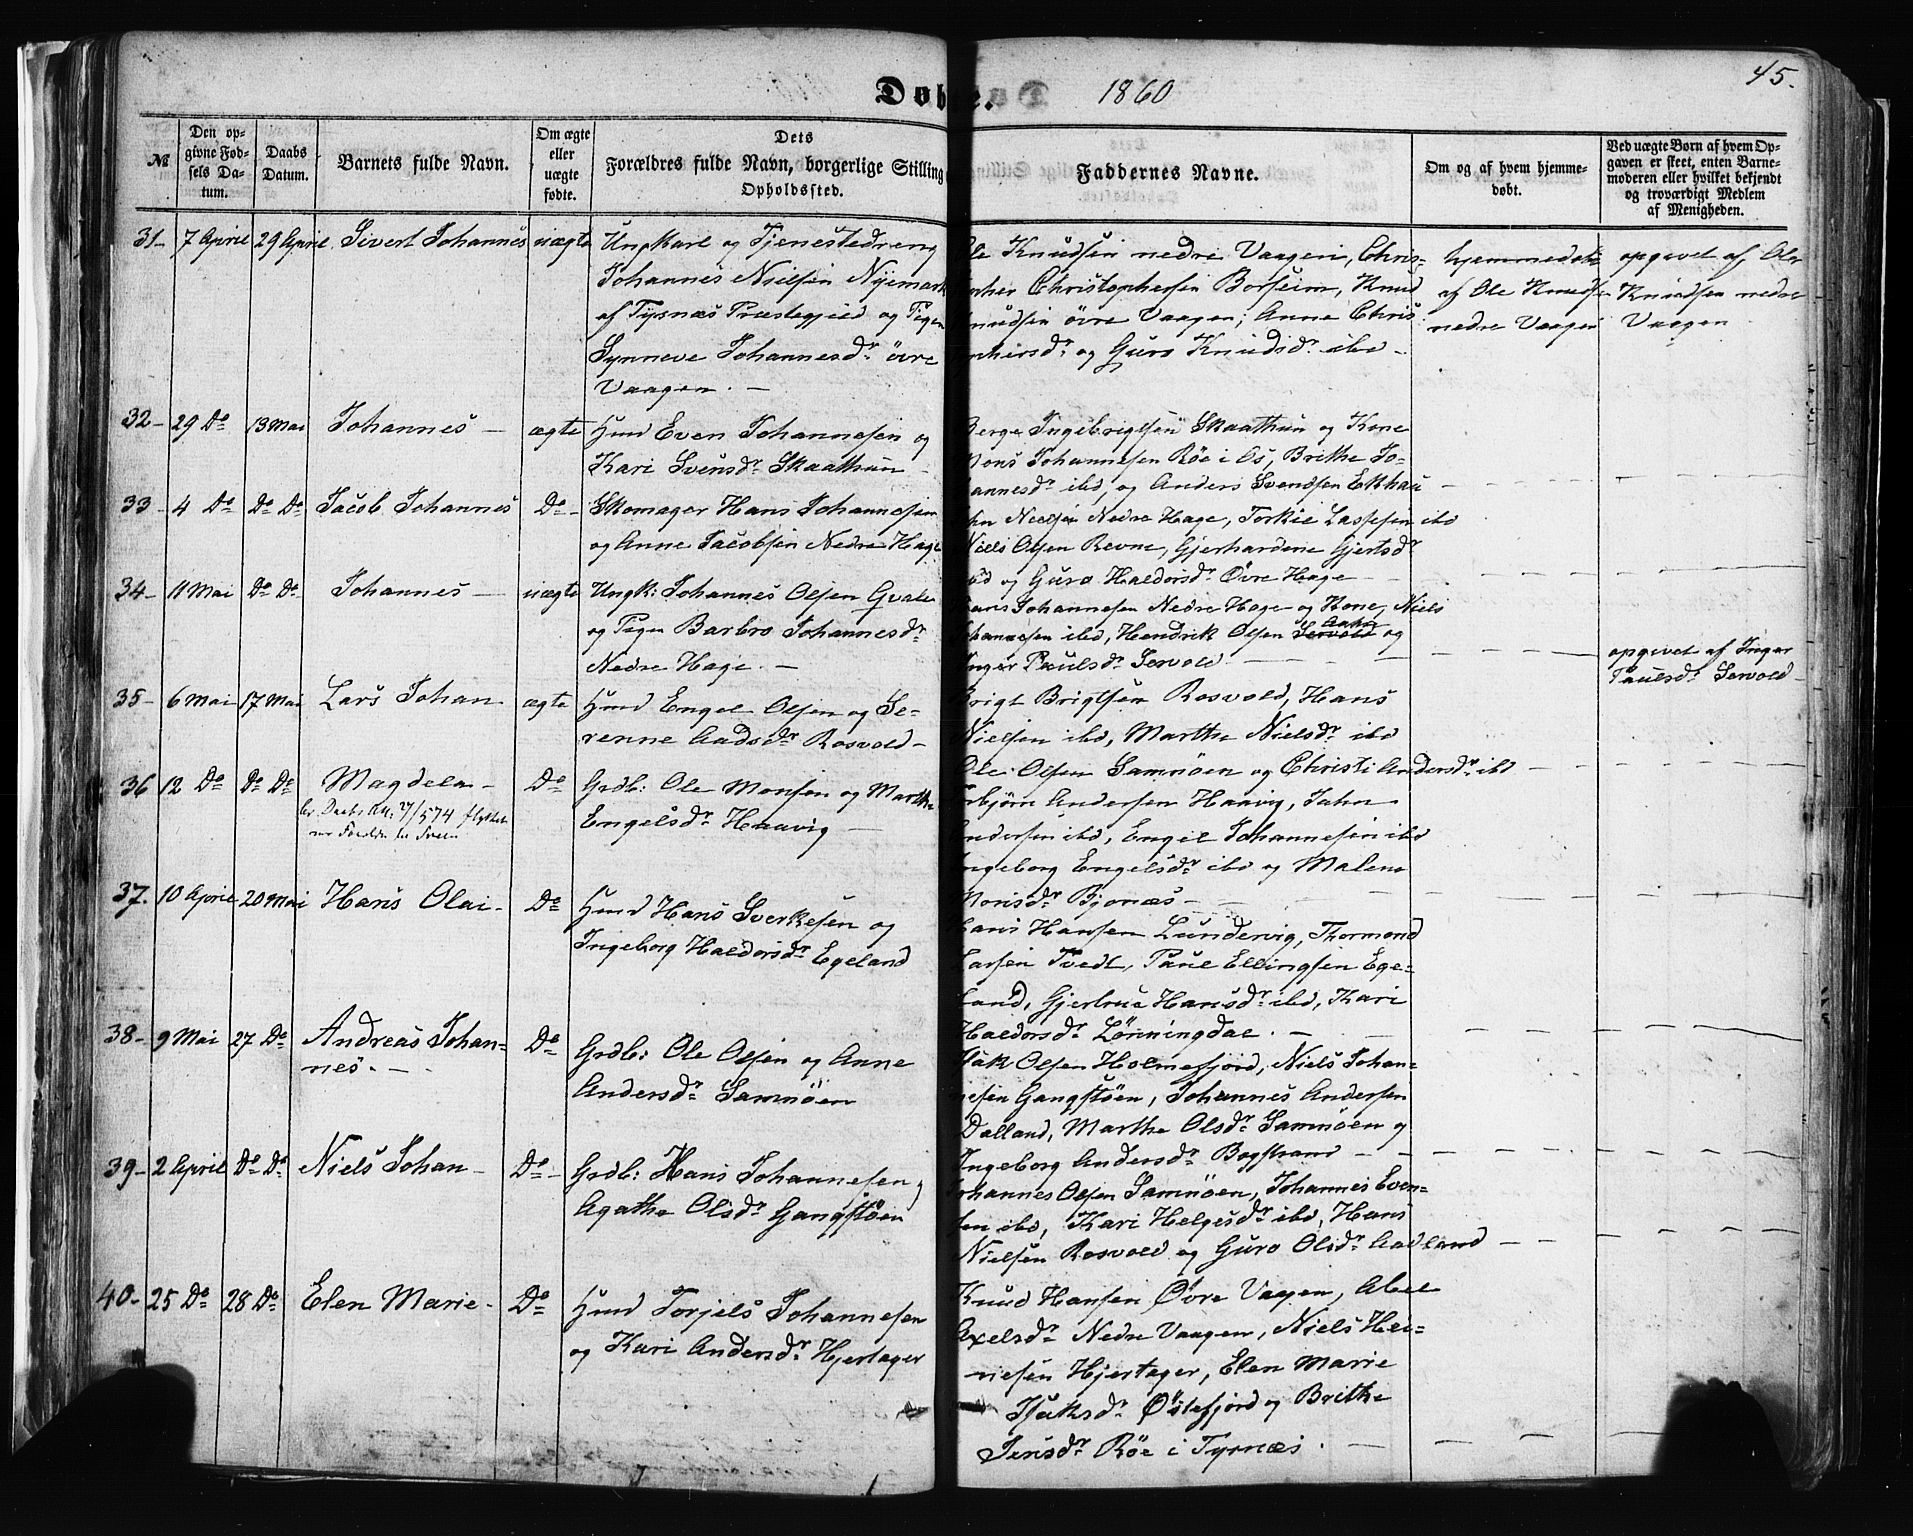 45.
Døbte. 1860
№
Den op-
givne Fød-
sels Da-
tum.
Daabs
Datum.
Barnets fulde Navn.
Om ægte
eller
uægte
fødte.
Dets
Forældres fulde Navn, borgerlige Stilling
Opholdssted.
Faddernes Navne.
Om og af hvem hjemme-
døbt.
Ved uægte Børn af hvem Op-
gaven er skeet, enten Barne-
moderen eller hvilket bekjendt
og troværdigt Medlem
af Menigheden.
31- 7 April 29 April Sivert Johannes uægte
Ungkarl og Tjenestedreng
Johannes Nielsen Nyemark
af Tysnæs Præstegjeld og Pigen
Synneve Johannesdr øvre
Vaagen. -
Ole Knudsen nedre Vaagen, Chris-
Christophersen Borseim, Knud
Knudsen øvre Vaagen; Anne Chris
og Guro Knudsdr ibd -
hjemmedøbt
af Ole Knudsen
nedre Vaagen
opgivet af Ole
Knudsen nedre
Vaagen
32- 29 Do 13 Mai Johannes - ægte
Hmd Even Johannesen og
Kari Svensdr Skaathun -
Berge Ingebrigtsen Skaathun og Kone
Mons Johannesen Røe i Os, Brithe Jo-
hannesdr ibd, og Anders Svendsen Ekhau
33- 4 Do Do Do Jacob Johannes Do -
Skomager Hans Johannesen
og Anne Jacobsen Nedre Hage
Nielsen Nedre Hage, Torkie Lassesen ibd
Niels Olsen Revne, Gjerhardene Gjertsdr
ibd og Guro Haldorsdr Øvre Hage -
34- 11 Mai Do Do Johannes - uægte
Ungk: Johannes Olsen Gvale
og Pigen Barbro Johannesdr
Nedre Hage. -
Hans Johannesen Nedre Hage og Kone, Niels
Johannesen ibd, Hendrik Olsen Servold og
Inger Paulsdr Servold
opgivet af Inger
Paulsdr Servold
35- 6 Mai 17 Mai Lars Johan ægte
Hmd Engel Olsen og Se-
renne Aadsdr Rosvold -
Brigt Brigtsen Rosvold, Hans
Nielsen ibd, Marthe Nielsdr ibd
Ole Olsen Samnøen og Christi Andersdr ibd
36 12 Do Do Do Magdela - Do
7/574 flyttet
Grdb: Ole Monsen og Marthe
Engelsdr Haavig -
Andersen Haavig, John
Andersen ibd, Engel Johannesen ibd
Ingeborg Engelsdr ibd og Malene
Monsdr Bjønæs -
37. 10 April 20 Mai Hans Olai - Do
Hmd Hans Sverkesen og
Ingeborg Haldorsdr Egeland
Hans Hansen Lundervig, Thormond
Larsen Tvedt, Paul Ellingsen Ege-
land, Gjertrue Hansdr ibd, Kari
Haldorsdr Lønningdal. -
38- 9 Mai 27 Do Andreas Johan-
nes. - Do
Grdb: Ole Olsen og Anne
Andersdr Samnøen
Isak Olsen Holmefjord, Niels Johan-
nesen Gangstøen, Johannes Andersen
Dalland, Marthe Olsdr Samnøen og
Ingeborg Andersdr Bogstrand
39- 2 April Do Do Niels Johan - Do -
Grdb: Hans Johannesen og
Agathe Olsdr Gangstøen
Johannes Olsen Samnøen, Johannes Even-
sen ibd, Kari Helgesdr ibd, Hans
Nielsen Rosvold og Guro Olsdr Aadland
40- 25 Do 28 Do Elen Marie - Do
Hmd Torjels Johannesen
og Kari Andersdr Hjertager
Knud Hansen Øvre Vaagen, Abel
Axelsdr Nedre Vaagen, Niels Hei-
nesen Hjertager, Elen Marie
Isaksdr Østefjord og Brithe
Jensdr Røe i Tysnæs.